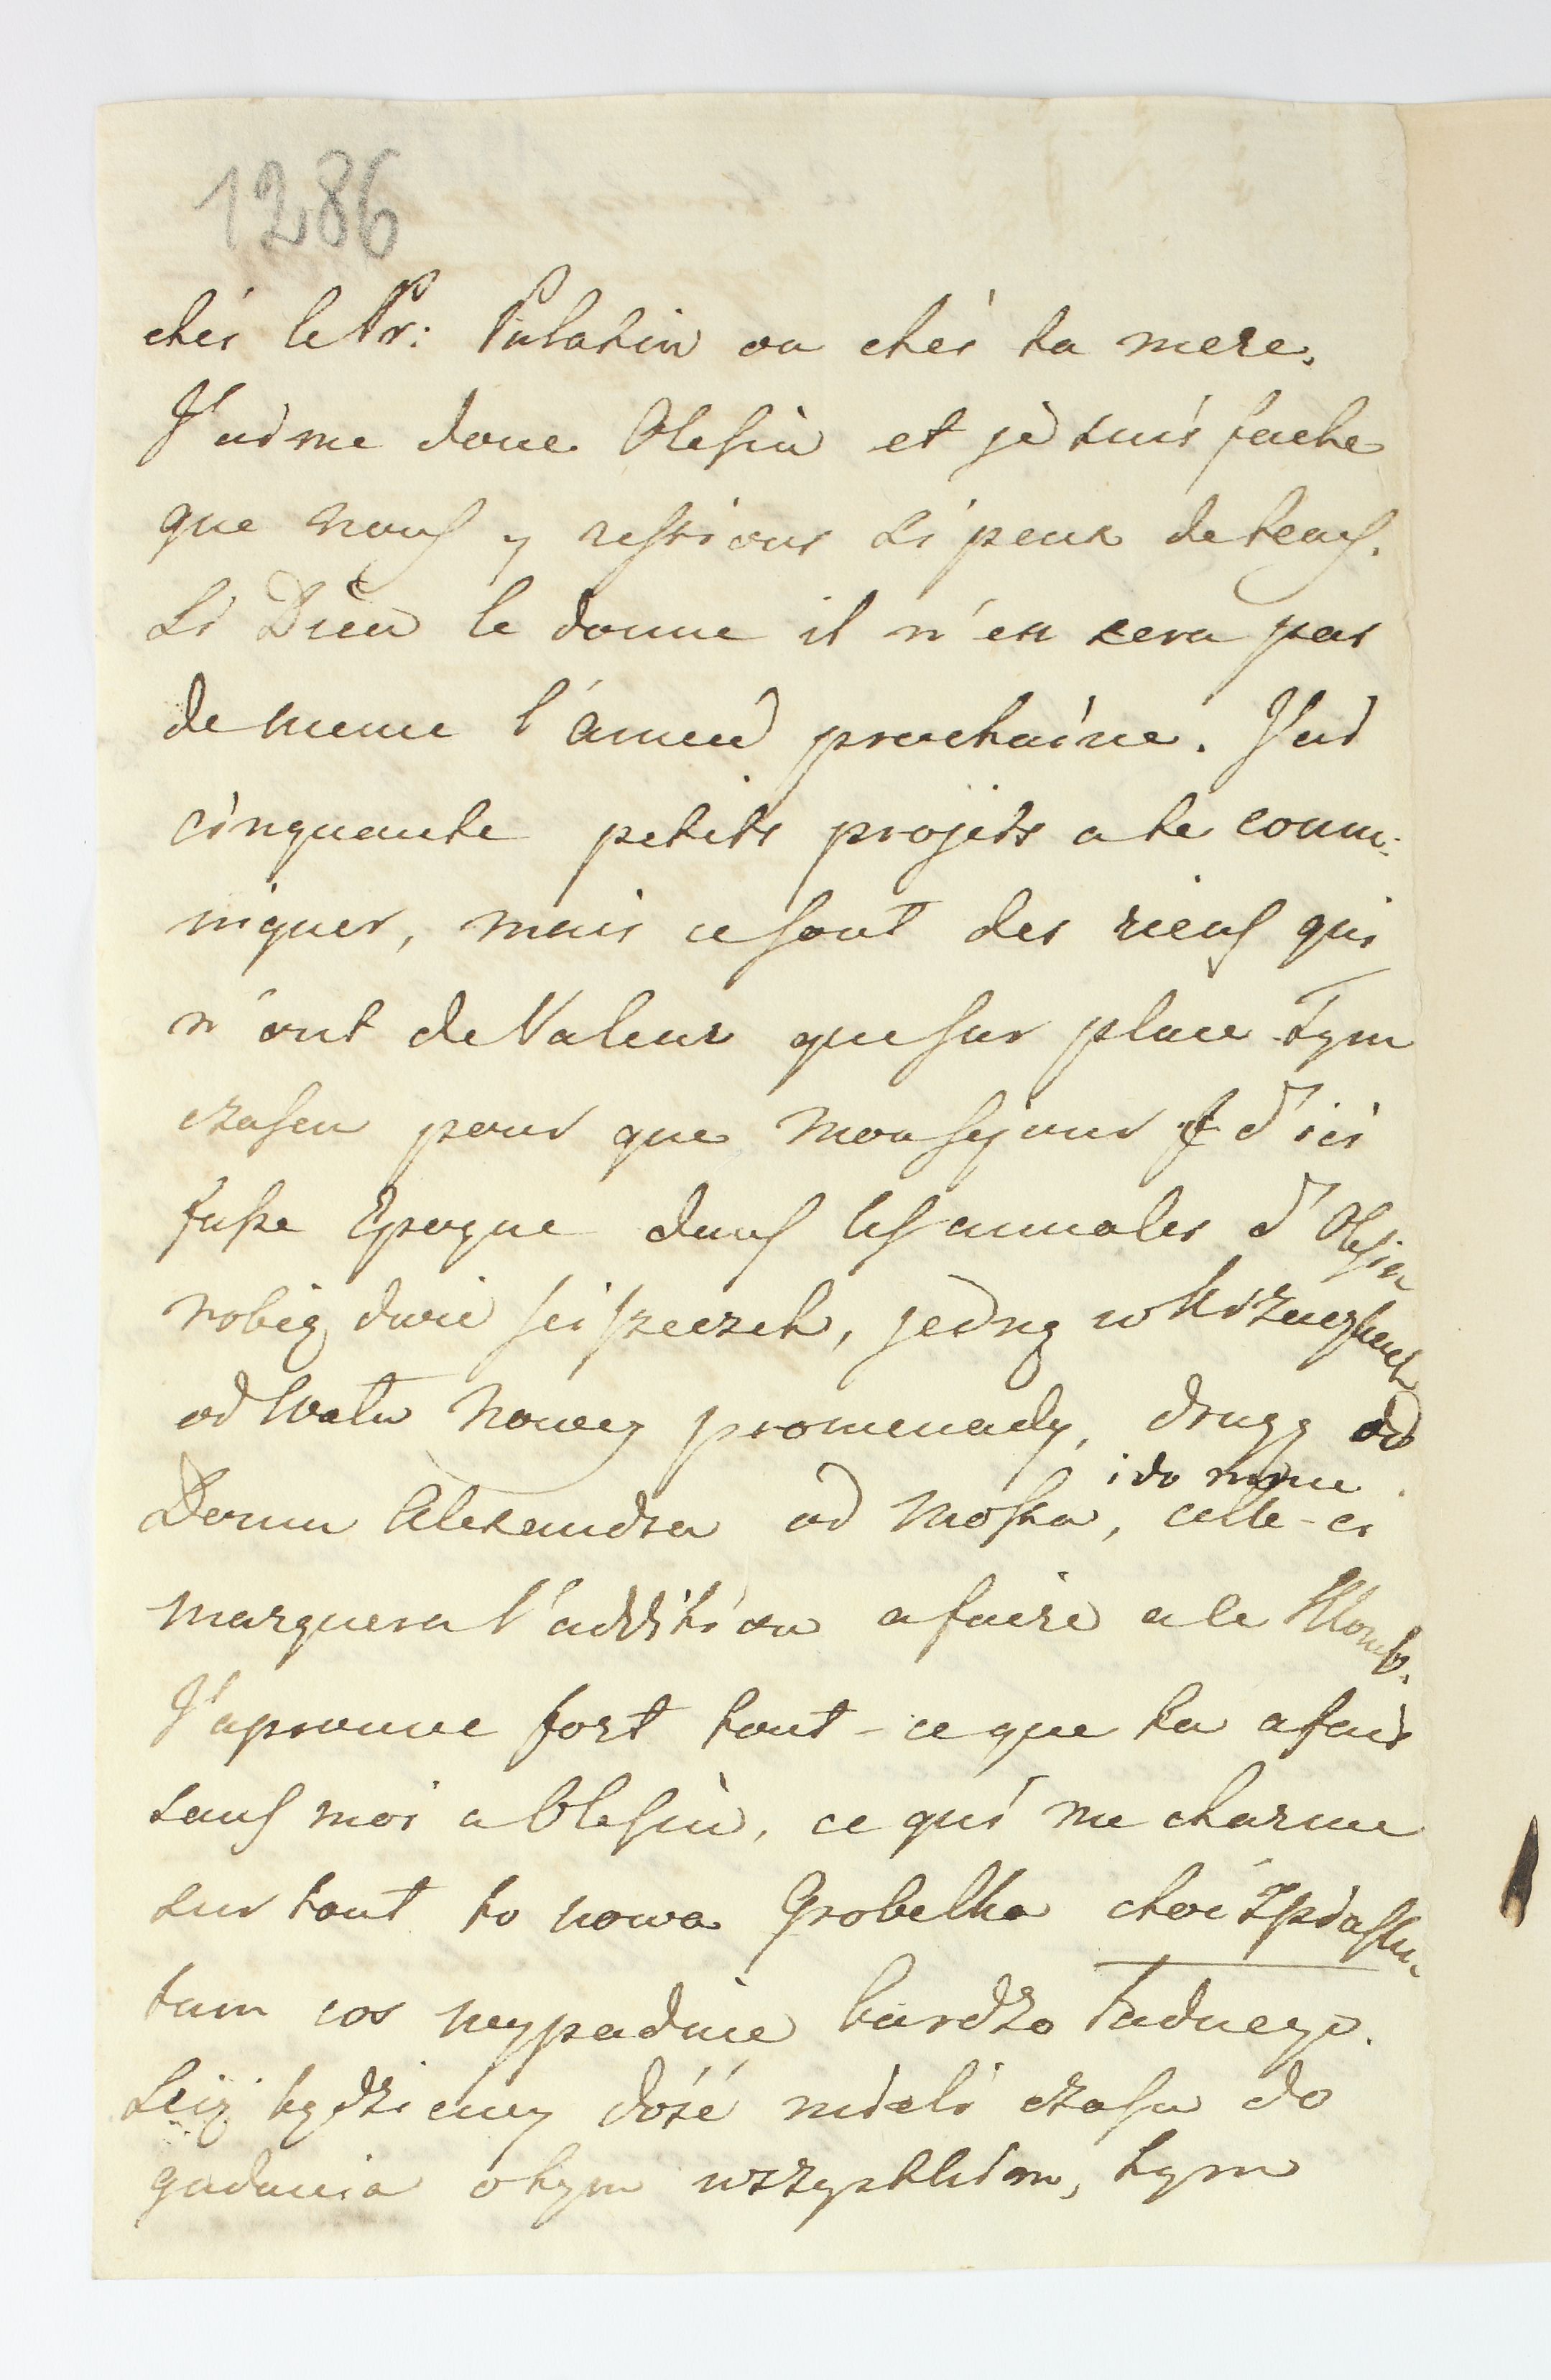 1286
chés le Pr: Palatin ou chés ta mere.
J'aime donc Olesin et je suis fache
que nous y restions si peux de tems.
Si Dieu le donne il n'en sera pas
de meme l'anneé prochaine. J'ai
cinquante petits projets a te comu-
niquer, mais ce sont des riens qui
n'ont de Valeur que sur place. Tym
czasem pour que mon sejour d'ici
fasse Epoque dans les annales d'Olesin
robię dwie scieszeczek, jedną w
od Wału nowey promenady, drugą od
i do mnie
Domu Alexandra od Mosta, celle-ci
marquera l'addition a faire a le Klomb.
J'aprouve fort tout-ce que tu a fais
sans moi a Olesin, ce qui me charme
sur tout to nowa Grobelka choć z piasku.
tam cos wypadnie bardzo ładnego.
Lecz będziemy dość mieli czasu do
gadania o tym wszystkim, tym